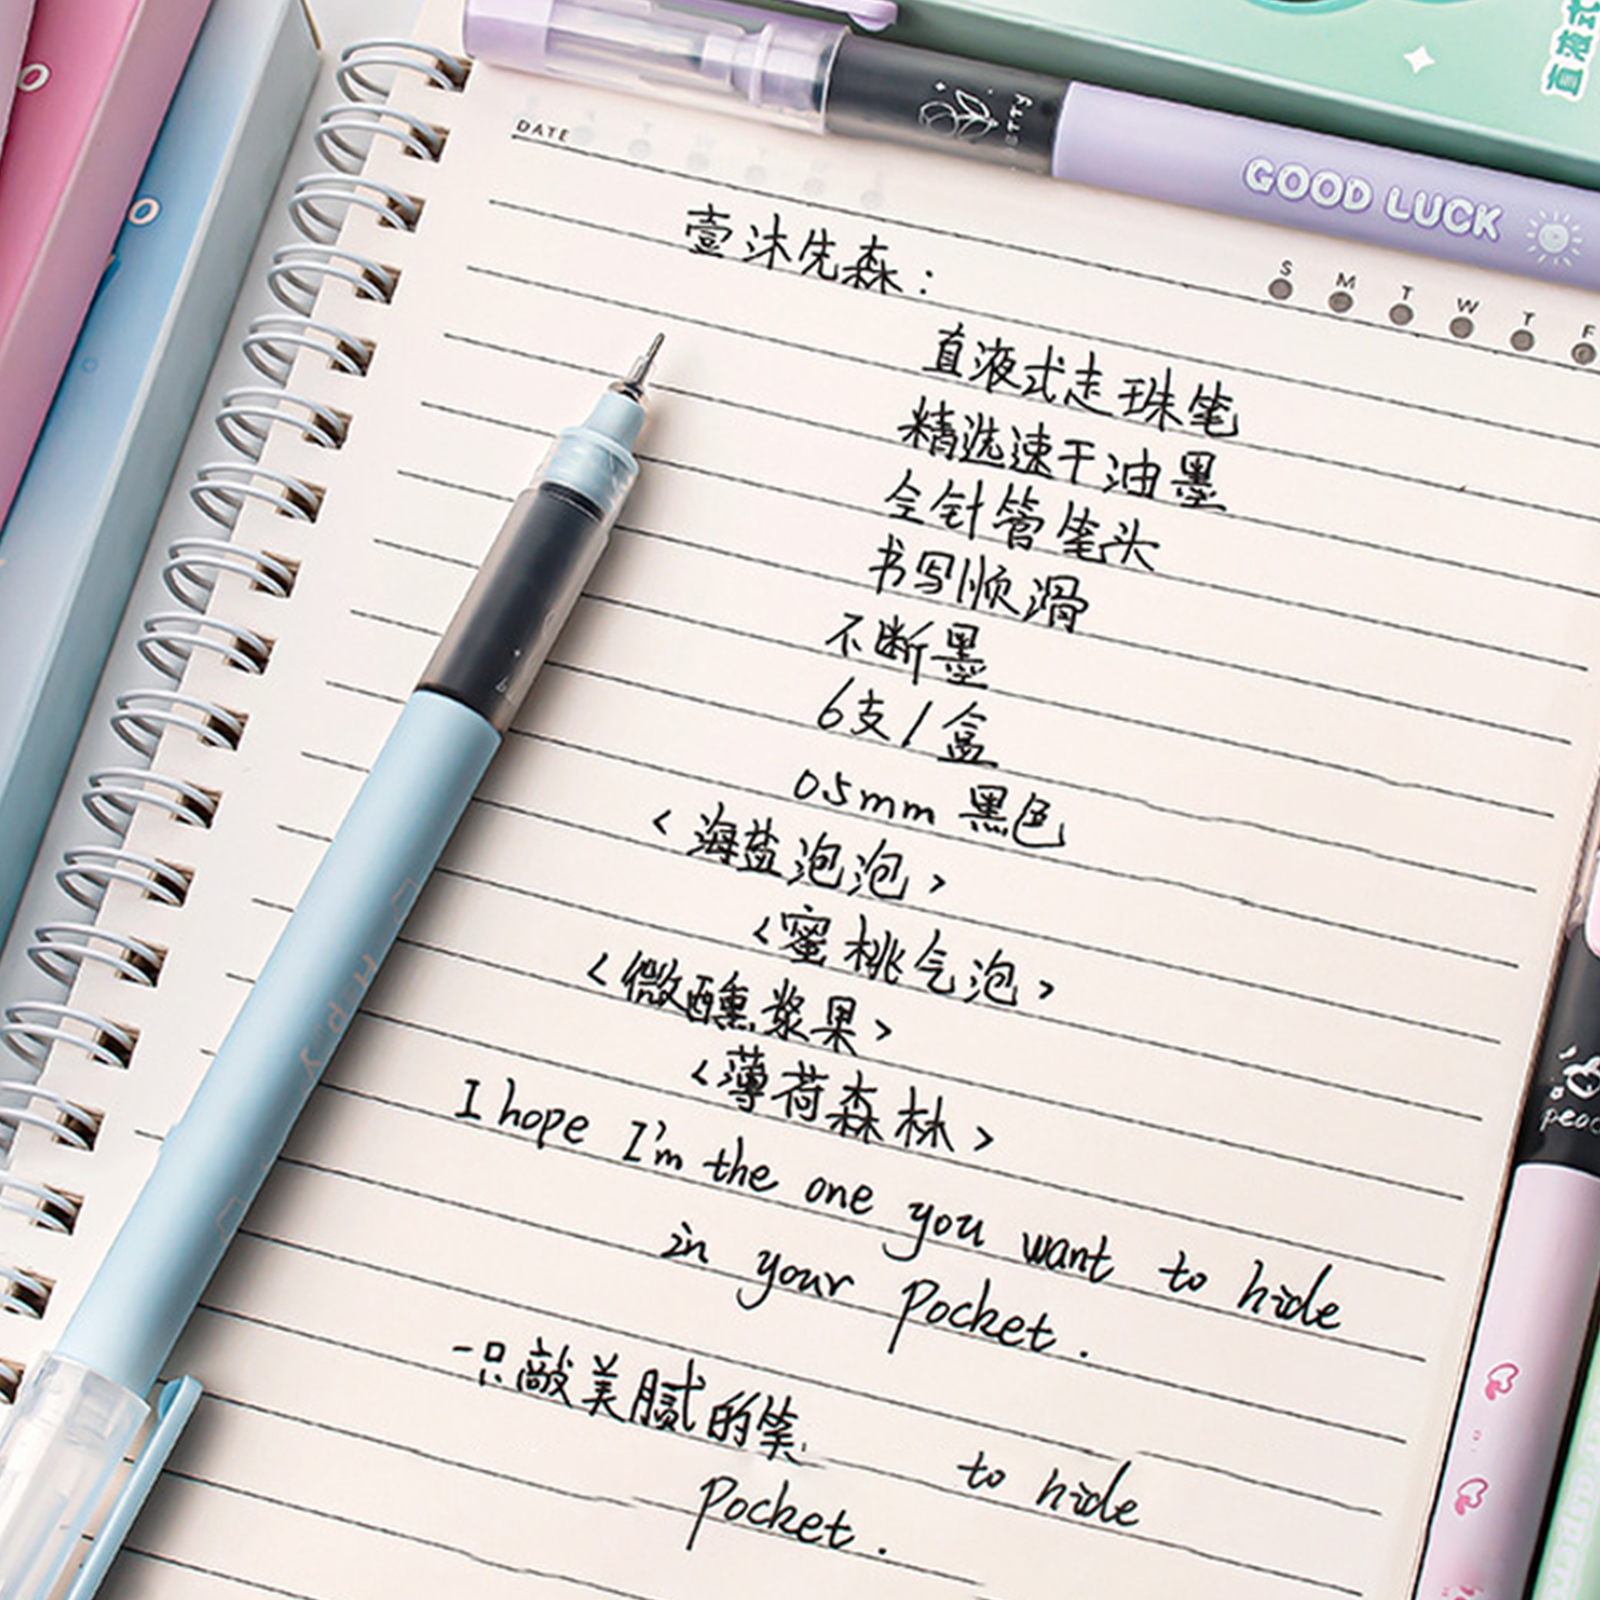 直液式
GOOD LUCK
DATE
S M T W T F
壹沐先森:
直液式走珠笔
精选速干油墨
全针管笔头
书写顺滑
不断墨
6支/盒
0.5mm 黑色
<海盐泡泡>
<蜜桃气泡>
<微醺浆果>
<薄荷森林>
I hope I'm the one you want to hide
in your pocket.
一只敲美腻的笔
to hide
Pocket.